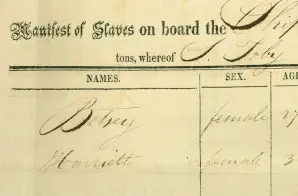 Manifest of Slaves on board the Ship
tons, whereof S. Toby
NAMES. SEX. AG
Betsey female 27
Harriett female 3